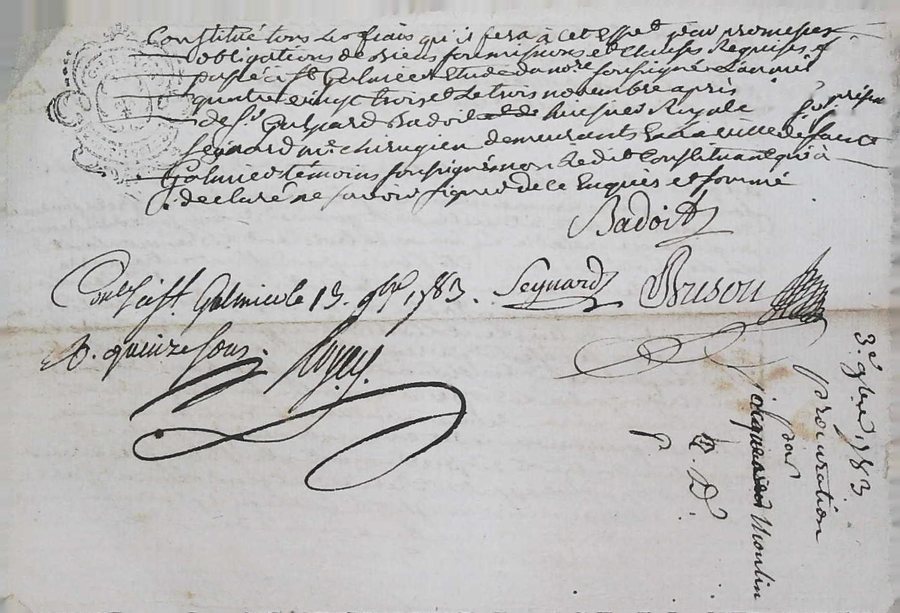 Constitué tous les frais qu'il fera à cet effet pour promesses
obligations de biens soumissions et clauses Requises f.
passé à St Galmier Etude du nore soussigné L'an mil
quatre vingt trois et le trois novembre apres
de Sr Badoit huissier Royale
Seynard me chirugien demeurants En la ville de saint
Galmier témoins soussignés non Ledit Constituant qui a
declaré ne savoir signer de ce Enquis et sommé
Badoit
Seynard
Con̄lé à St. Galmier le 13. 9bre 1783.
R. quinze sous.
3e 9bre 1783.
procuration
par
Moulin
P. D.